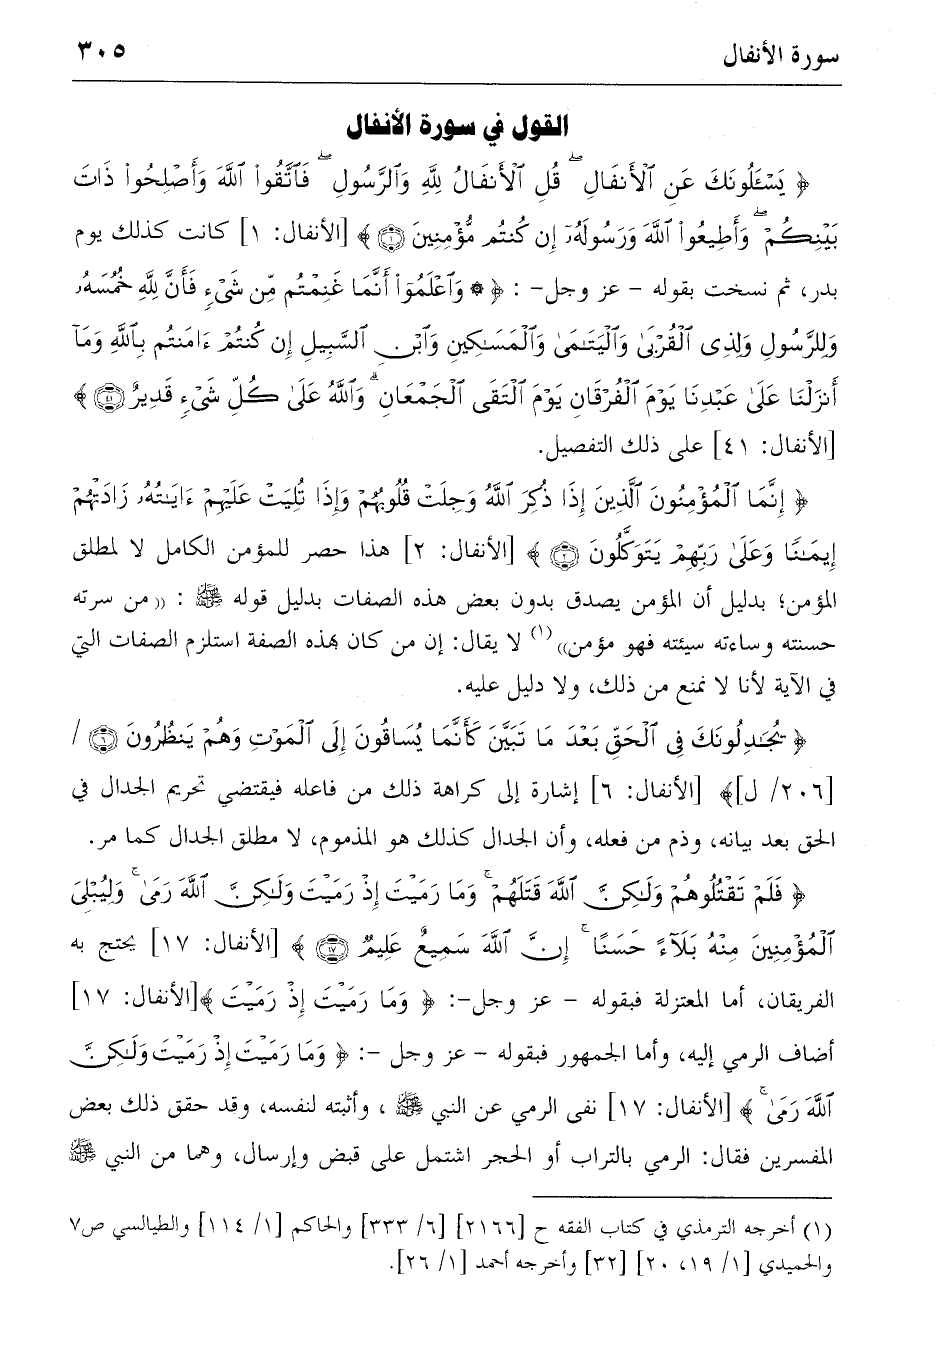 سورة الأنفال ٣٠٥
القول في سورة الأنفال
﴿ يَسْـَٔلُونَكَ عَنِ ٱلْأَنفَالِ ۖ قُلِ ٱلْأَنفَالُ لِلَّهِ وَٱلرَّسُولِ ۖ فَٱتَّقُوا۟ ٱللَّهَ وَأَصْلِحُوا۟ ذَاتَ
بَيْنِكُمْ ۖ وَأَطِيعُوا۟ ٱللَّهَ وَرَسُولَهُۥٓ إِن كُنتُم مُّؤْمِنِينَ ۝١ ﴾ [الأنفال: ١] كانت كذلك يوم
بدر، ثم نسخت بقوله - عز وجل- : ﴿ ۞ وَٱعْلَمُوٓا۟ أَنَّمَا غَنِمْتُم مِّن شَىْءٍ فَأَنَّ لِلَّهِ خُمُسَهُۥ
وَلِلرَّسُولِ وَلِذِى ٱلْقُرْبَىٰ وَٱلْيَتَـٰمَىٰ وَٱلْمَسَـٰكِينِ وَٱبْنِ ٱلسَّبِيلِ إِن كُنتُمْ ءَامَنتُم بِٱللَّهِ وَمَآ
أَنزَلْنَا عَلَىٰ عَبْدِنَا يَوْمَ ٱلْفُرْقَانِ يَوْمَ ٱلْتَقَى ٱلْجَمْعَانِ ۗ وَٱللَّهُ عَلَىٰ كُلِّ شَىْءٍ قَدِيرٌ ۝٤١ ﴾
[الأنفال: ٤١] على ذلك التفصيل.
﴿ إِنَّمَا ٱلْمُؤْمِنُونَ ٱلَّذِينَ إِذَا ذُكِرَ ٱللَّهُ وَجِلَتْ قُلُوبُهُمْ وَإِذَا تُلِيَتْ عَلَيْهِمْ ءَايَـٰتُهُۥ زَادَتْهُمْ
إِيمَـٰنًا وَعَلَىٰ رَبِّهِمْ يَتَوَكَّلُونَ ۝٢ ﴾ [الأنفال: ٢] هذا حصر للمؤمن الكامل لا لمطلق
المؤمن؛ بدليل أن المؤمن يصدق بدون بعض هذه الصفات بدليل قوله ﷺ : «من سرته
حسنته وساءته سيئته فهو مؤمن»(١) لا يقال: إن من كان بهذه الصفة استلزم الصفات التي
في الآية لأنا لا نمنع من ذلك، ولا دليل عليه.
﴿ يُجَـٰدِلُونَكَ فِى ٱلْحَقِّ بَعْدَ مَا تَبَيَّنَ كَأَنَّمَا يُسَاقُونَ إِلَى ٱلْمَوْتِ وَهُمْ يَنظُرُونَ ۝٦ /
[٢٠٦/ ل]﴾ [الأنفال: ٦] إشارة إلى كراهة ذلك من فاعله فيقتضي تحريم الجدال في
الحق بعد بيانه، وذم من فعله، وأن الجدال كذلك هو المذموم، لا مطلق الجدال كما مر.
﴿ فَلَمْ تَقْتُلُوهُمْ وَلَـٰكِنَّ ٱللَّهَ قَتَلَهُمْ ۚ وَمَا رَمَيْتَ إِذْ رَمَيْتَ وَلَـٰكِنَّ ٱللَّهَ رَمَىٰ ۚ وَلِيُبْلِىَ
ٱلْمُؤْمِنِينَ مِنْهُ بَلَآءً حَسَنًا ۚ إِنَّ ٱللَّهَ سَمِيعٌ عَلِيمٌ ۝١٧ ﴾ [الأنفال: ١٧] يحتج به
الفريقان، أما المعتزلة فبقوله - عز وجل-: ﴿ وَمَا رَمَيْتَ إِذْ رَمَيْتَ ﴾[الأنفال: ١٧]
أضاف الرمي إليه، وأما الجمهور فبقوله - عز وجل -: ﴿ وَمَا رَمَيْتَ إِذْ رَمَيْتَ وَلَـٰكِنَّ
ٱللَّهَ رَمَىٰ ۚ ﴾ [الأنفال: ١٧] نفى الرمي عن النبي ﷺ ، وأثبته لنفسه، وقد حقق ذلك بعض
المفسرين فقال: الرمي بالتراب أو الحجر اشتمل على قبض وإرسال، وهما من النبي ﷺ
(١) أخرجه الترمذي في كتاب الفقه ح [٢١٦٦] [٦/ ٣٣٣] والحاكم [١/ ١١٤] والطيالسي ص٧
والحميدي [١/ ١٩، ٢٠] [٣٢] وأخرجه أحمد [١/ ٢٦].